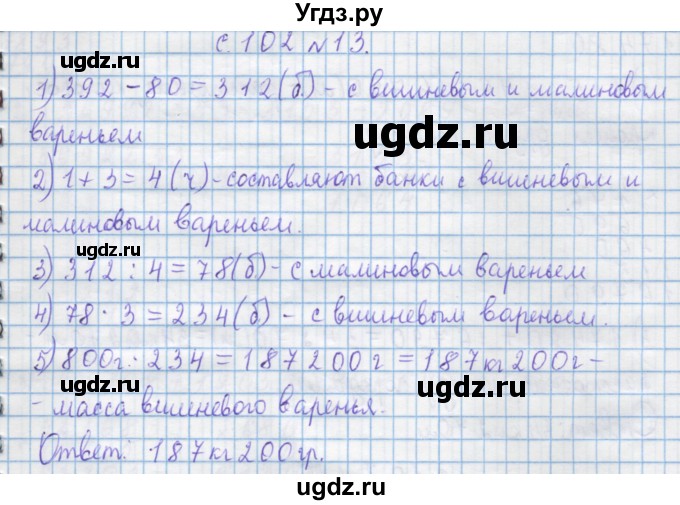 Угдз.ру
с 102 №13.
1) 392 - 80 = 312 (б.) - с вишневым и малиновым
вареньем
ugdz.ru
ugdz.ru
2) 1 + 3 = 4 (ч) - составляют банки с вишневым и
малиновым вареньем.
ugdz.ru
3) 312 : 4 = 78 (б) - с малиновым вареньем
4) 78 · 3 = 234 (б) - с вишневым вареньем.
ugdz.ru
5) 800г · 234 = 187200 г = 187 кг 200 г -
- масса вишневого варенья.
ugdz.ru
ugdz.ru
Ответ: 187 кг 200 гр.
ugdz.ru